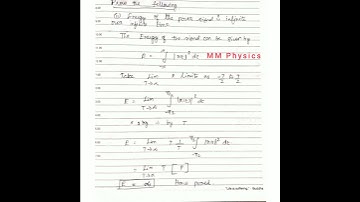 Prove the following
(1) Energy of the power signal is infinite
over infinite time
The Energy of the signal can be given by
E = ∫ |x(t)|² dt
MM Physics
Take Lim T→∞ & limits as -T/2 to T/2
E = Lim T→∞ ∫ |x(t)|² dt
× by ÷ by T
E = Lim T→∞ T 1/T ∫ |x(t)|² dt
= Lim T→∞ T [P]
E = ∞ Hence proved.